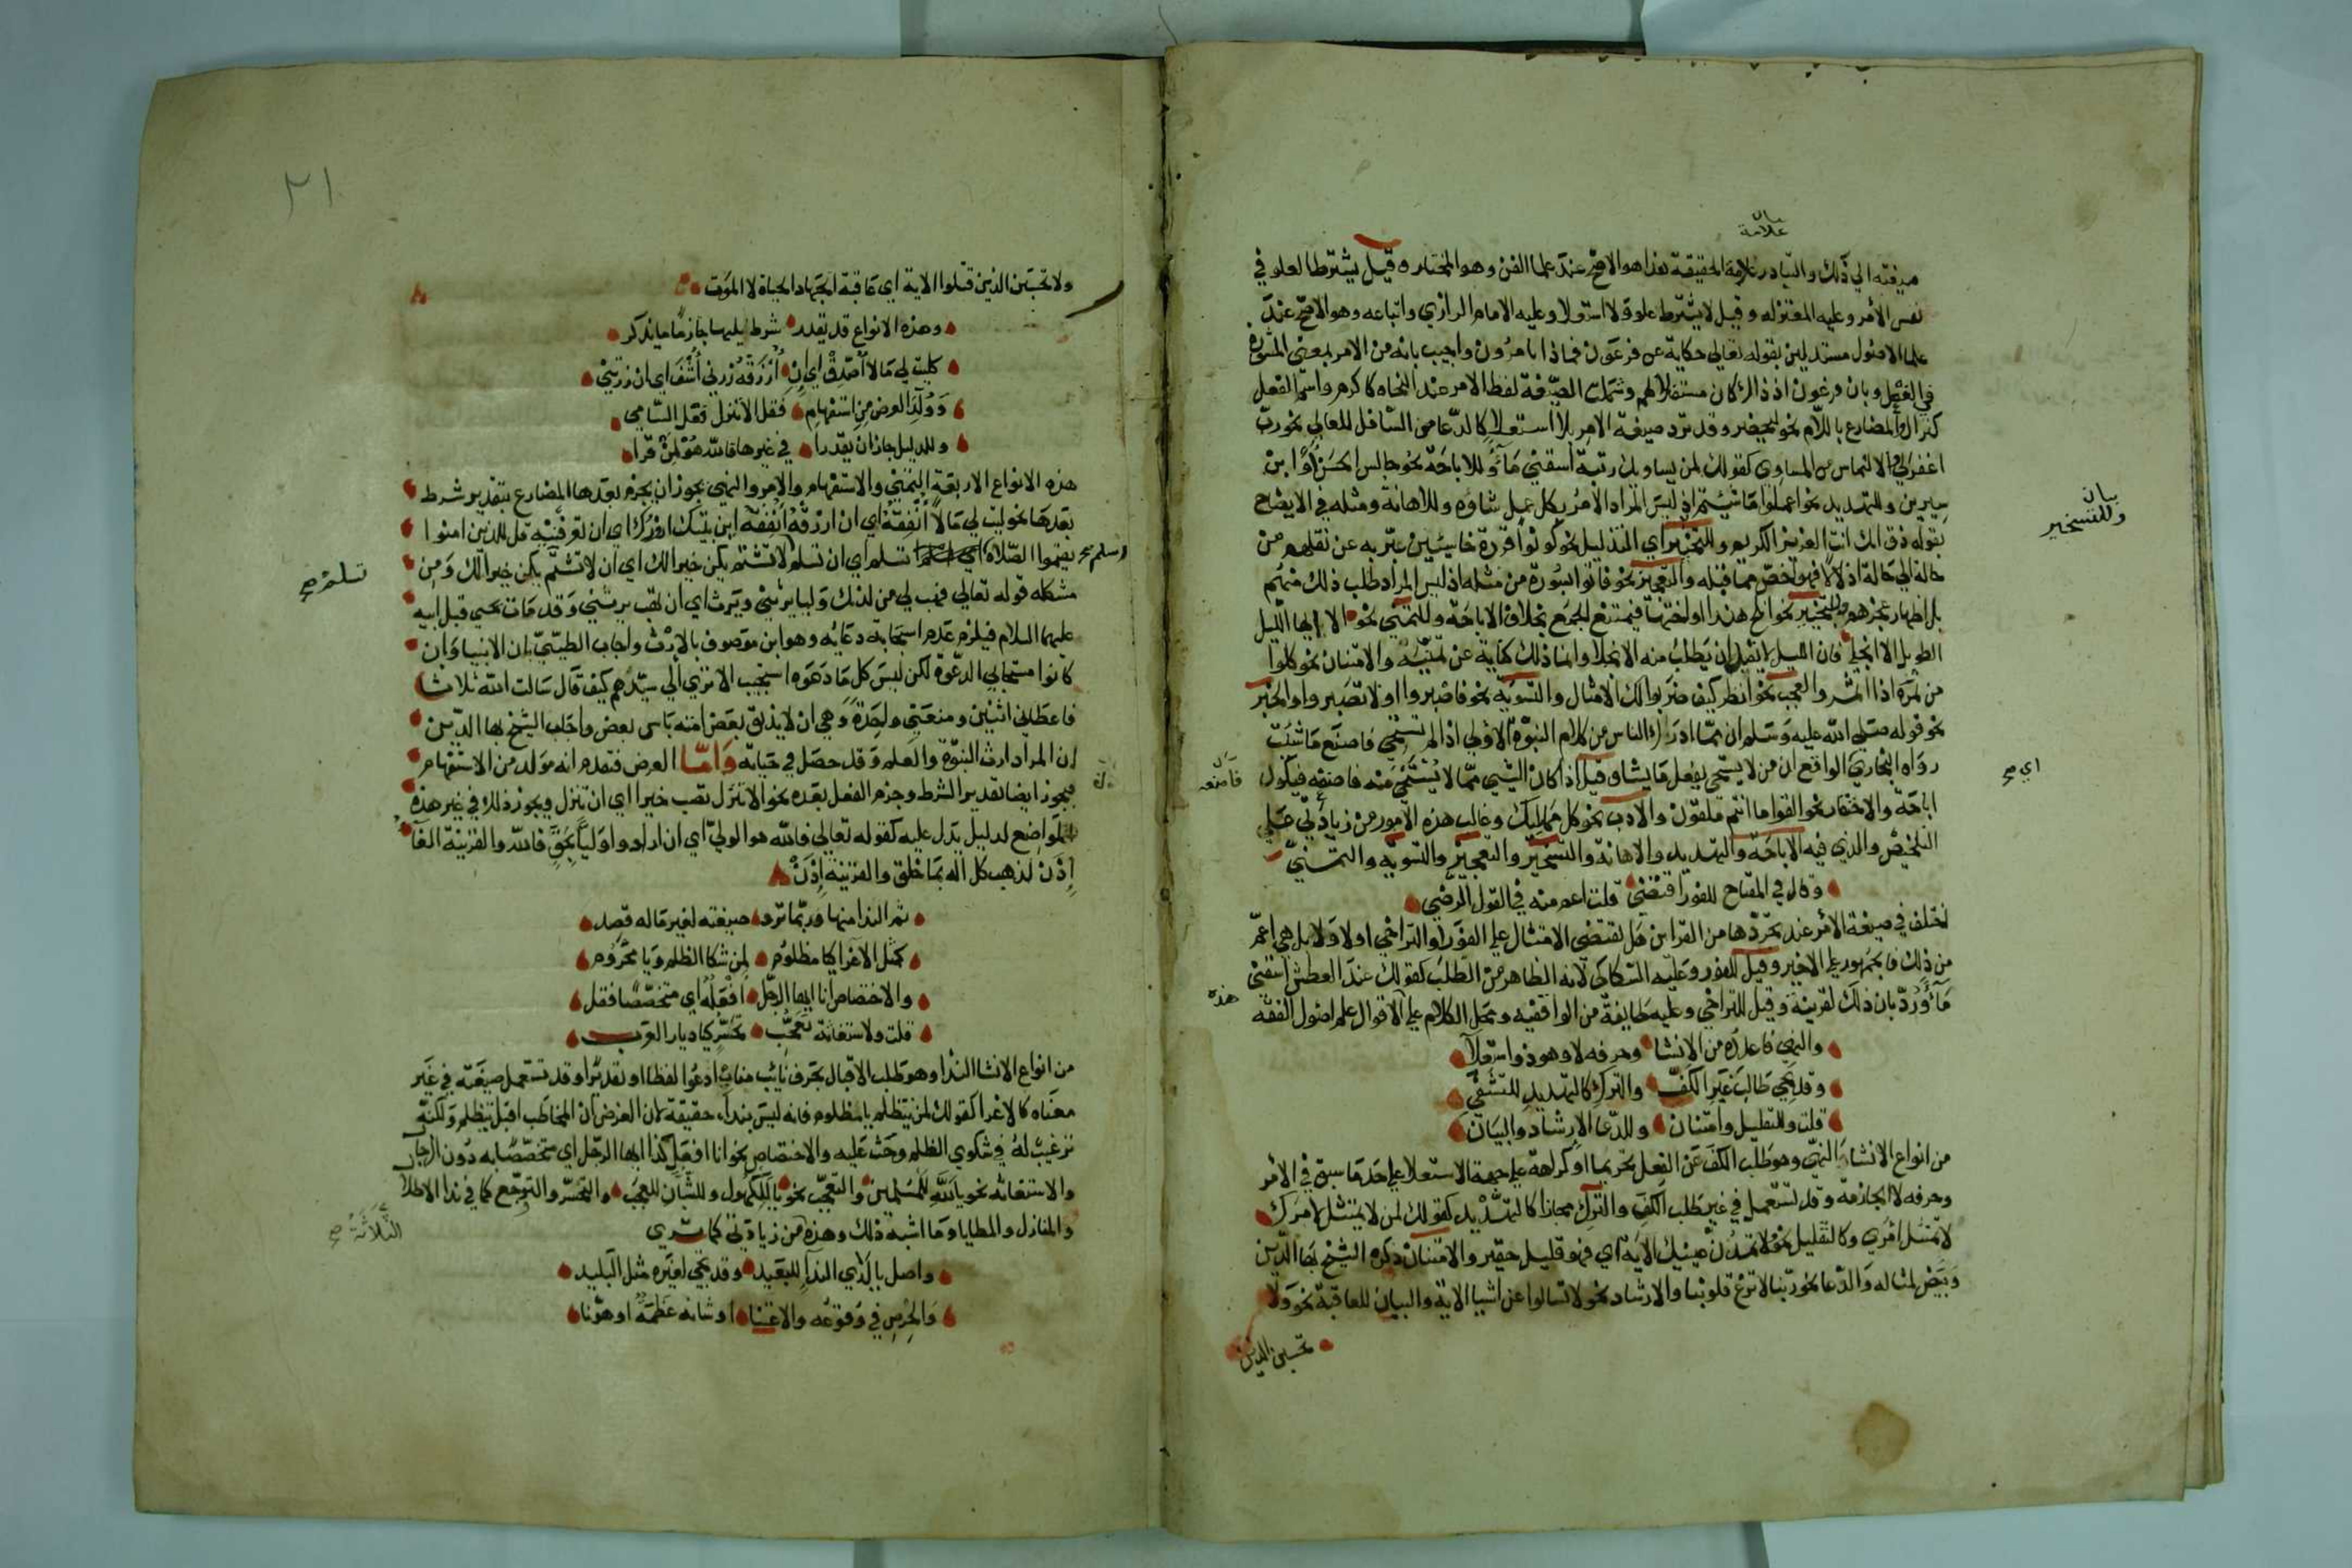 صيغته الي ذلك والتبادر علامة الحقيقة هذا هو الاصح عند علما الفن وهو المختار وقيل يشترط العلو في
نفس الأمر وعليه المعتزله وقيل لا يشترط علو ولا استعلا وعليه الامام الرازي واتباعه وهو الاصح عند
علما الاصول مستدلين بقوله تعالي حكاية عن فرعون فماذا تامرون واجيب بانه من الامر بمعني المشورة
في الفعل وبان فرعون اذ ذاك كان مستفلا لهم وشملت الصيغة لفظ الامر عند النحاه كاكرم واسم الفعل
كنزال والمضارع باللام نحو ليحضر وقد ترد صيغة الامر بلا استعلا كالدعا من السافل للعالي نحو رب
اغفر لي والالتماس من المساوي كقولك لمن يساويك رتبة اسقني مآء وللاباحة نحو جالس الحسن أو ابن
سيرين وللتهديد نحو اعملوا ما شئتم اذ ليس المراد الامر بكل عمل شاؤه وللاهانة ومثله في الايضاح
بقوله ذق انك انت العزيز الكريم وللتسخير اي التذليل نحو كونوا قردة خاسئين عبر به عن نقلهم من
حالة الي حالة اذلالا فهو اخص مما قبله والتعجيز نحو فأتوا بسورة من مثله اذ ليس المراد طلب ذلك منهم
بل اظهار عجزهم والتخيير نحو انكح هندا او اختها فيمتنع الجمع بخلاف الاباحة وللتمني نحو الا ايها الليل
الطويل الا انجلي فان الليل لا يقبل ان يطلب منه الانجلا وانما ذلك كناية عن تمنيه والامتنان نحو كلوا
من ثمره اذا اثمر والعجب نحو انظر كيف ضربوا لك الامثال والتسوية نحو فاصبروا او لا تصبروا والخبر
نحو قوله صلي الله عليه وسلم ان مما ادرك الناس من كلام النبوة الاولي اذا لم تستحي فاصنع ما شئت
رواه البخاري الواقع ان من لا يستحي يفعل ما يشا وقيل اذا كان الشي مما لا يستحي منه فاصنعه فيكون
اباحة والاحتقار نحو القوا ما انتم ملقون والادب نحو كل مما يليك وغالب هذه الامور من زيادتي علي
التلخيص والذي فيه الاباحة والتهديد والاهانة والتسخير والتعجيز والتسويه والتمني
وقال في المفتاح للفور اقتضي قلت اعم منه في القول المرضي
اختلف في صيغة الأمر عند تجردها من القراين هل تقتضي الامتثال علي الفور او التراخي او لا ولا بل هي اعم
من ذلك فالجمهور علي الاخير وقيل للفور وعليه السكاكي لانه الظاهر من الطلب كقولك عند العطش اسقني
مآء ورد بان ذلك لقرينة وقيل للتراخي وعليه طايفة من الواقفيه ومحل الكلام علي الاقوال علم اصول الفقه
والنهي فاعدده من الانشا وحرفه لا وهو ذو استعلآ
وقد يجي طالب غير الكف والترك كالتهديد للتشفي
قلت وللتقليل وامتنان وللدعا الارشاد والبيان
من انواع الانشاء النهي وهو طلب الكف عن الفعل تحريما او كراهة علي جهة الاستعلا علي حد ما سبق في الأمر
وحرفه لا الجازمة وقد تستعمل في غير طلب الكف والترك مجازا كالتهديد كقولك لمن لا يمتثل امرك
لا تمتثل امري وكالتقليل نحو لا تمدن عينيك الآية اي فهو قليل حقير والامتنان ذكره الشيخ بها الدين
وبيض لمثاله والدعا نحو ربنا لا تزغ قلوبنا والارشاد نحو لا تسالوا عن اشيا الاية والبيان للعاقبة نحو ولا
تحسبن الذين
بيان
علامة
بيان
وللتسخير
اي صح
فاصنعه
هذه
٢١
ولا تحسبن الذين قتلوا الاية اي عاقبة الجهاد الحياة لا الموت
وهذه الانواع قد يقدر شرط يليها جازما ما يذكر
كليت لي مالا اصدق اي ان أرزقه زرني أشف اي ان زرتني
وولد العرض من استفهام فقل الا تنزل فقل السامي
وللدليل جاز ان يقدرا في غيرها فالله هو لمن قرا
هذه الانواع الاربعة التمني والاستفهام والامر والنهي يجوز ان يجزم بعدها المضارع بتقدير شرط
بعدها نحو ليت لي مالا أنفقه اي ان ارزقه انفقه اين بيتك ازرك اي ان تعرفنيه قل للذين امنوا
يقيموا الصلاة تسلم اي ان تسلم لا تشتم يكن خيرا لك اي ان لا تشتم يكن خيرا لك ومن
مشكله قوله تعالي فهب لي من لدنك وليا يرثني ويرث اي ان تهب يرثني وقد مات يحيي قبل ابيه
عليهما السلام فيلزم عدم استجابة دعائه وهو ابن موصوف بالارث واجاب الطيبي بان الانبيا وان
كانوا مستجابي الدعوة لكن ليس كل ما دعوه استجيب الا تري الي سيدهم كيف قال سالت الله ثلاثا
فاعطاني اثنين ومنعني واحدة وهي ان لا يذيق بعض امته باس بعض واجاب الشيخ بها الدين
ان المراد ارث النبوة والعلم وقد حصل في حياته وأما العرض فتقدم انه مولد من الاستفهام
فيجوز ايضا تقدير الشرط وجزم الفعل بعده نحو الا تنزل تصب خيرا اي ان تنزل ويجوز ذلك في غير هذه
المواضع لدليل يدل عليه كقوله تعالي فالله هو الولي اي ان ارادوا وليا بحق فالله والقرينة الفآ
إذن لذهب كل اله بما خلق والقرينة إذن
ثم الندا منها وربما ترد صيغته لغير ماله قصد
كمثل الاغرا كيا مظلوم لمن شكا الظلم ويا محروم
والاختصاص انا ايها الرجل افعله اي متخصصا فقل
قلت ولاستغاثة تعجب تحسر كيا ديار العرب
من انواع الانشا الندا وهو طلب الاقبال بحرف نايب مناب ادعوا لفظا او تقديرا وقد تستعمل صيغته في غير
معناه كالاغرا كقولك لمن يتظلم يا مظلوم فانه ليس بنداء حقيقة لان الغرض ان المخاطب اقبل يتظلم ولكنه
ترغيب له في شكوي الظلم وحث عليه والاختصاص نحو انا افعل كذا ايها الرجل اي متخصصا به دون الرجال
والاستغاثه نحو يا لله للمسلمين والتعجب نحو يا للكهول وللشبان للعجب والتحسر والتوجع كما في ندا الاطلال
والمنازل والمطايا وما اشبه ذلك وهذه من زيادتي كما تري
واصل يا لذي الندآ للبعيد وقد يجي لغيره مثل البليد
والحرص في وقوعه والاعتنا او شانه عظمه او هونا
وسلم
تسلم صح
الثلاثة صح